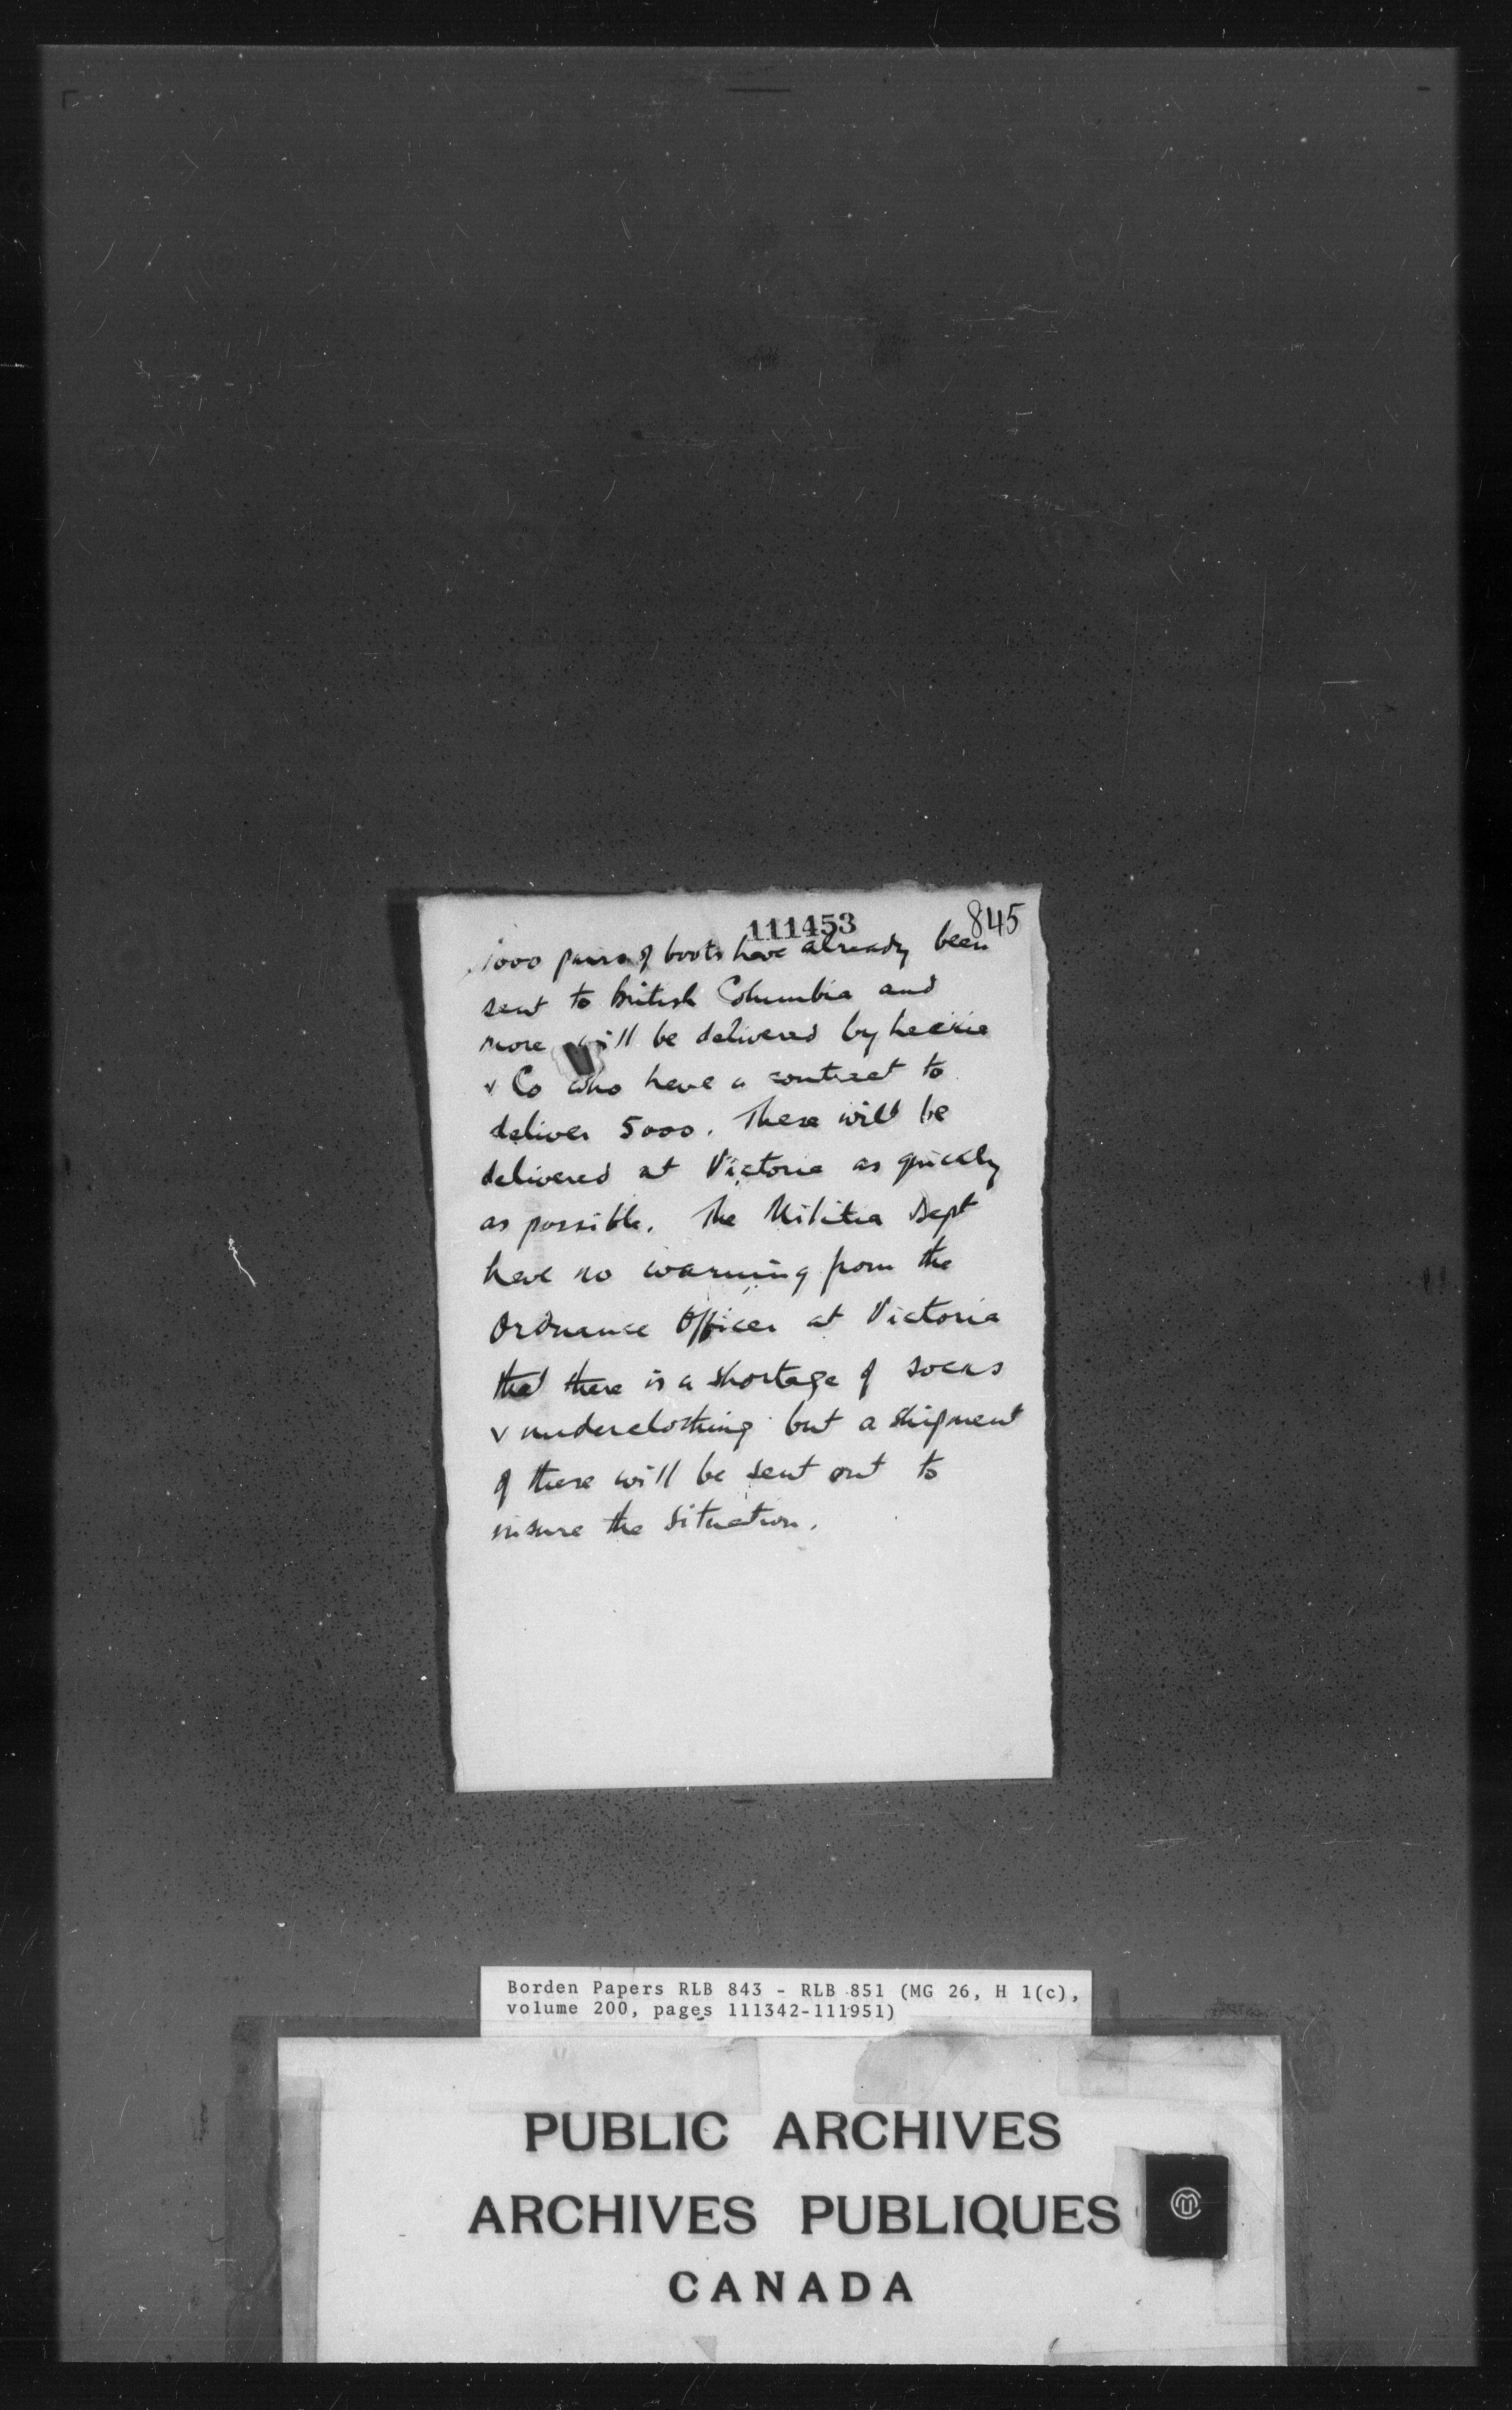 111453
845
1000 pairs of boots have already been
sent to British Columbia and
more will be delivered by Leckie
& Co who have a contract to
deliver 5000. These will be
delivered at Victoria as quickly
as possible. The Militia Dept
have no warning from the
Ordnance Officer at Victoria
that there is a shortage of socks
& underclothing but a shipment
of these will be sent out to
insure the situation.
Borden Papers RLB 843 - RLB 851 (MG 26, H 1(c),
volume 200, pages 111342-111951)
PUBLIC ARCHIVES
ARCHIVES PUBLIQUES
CANADA